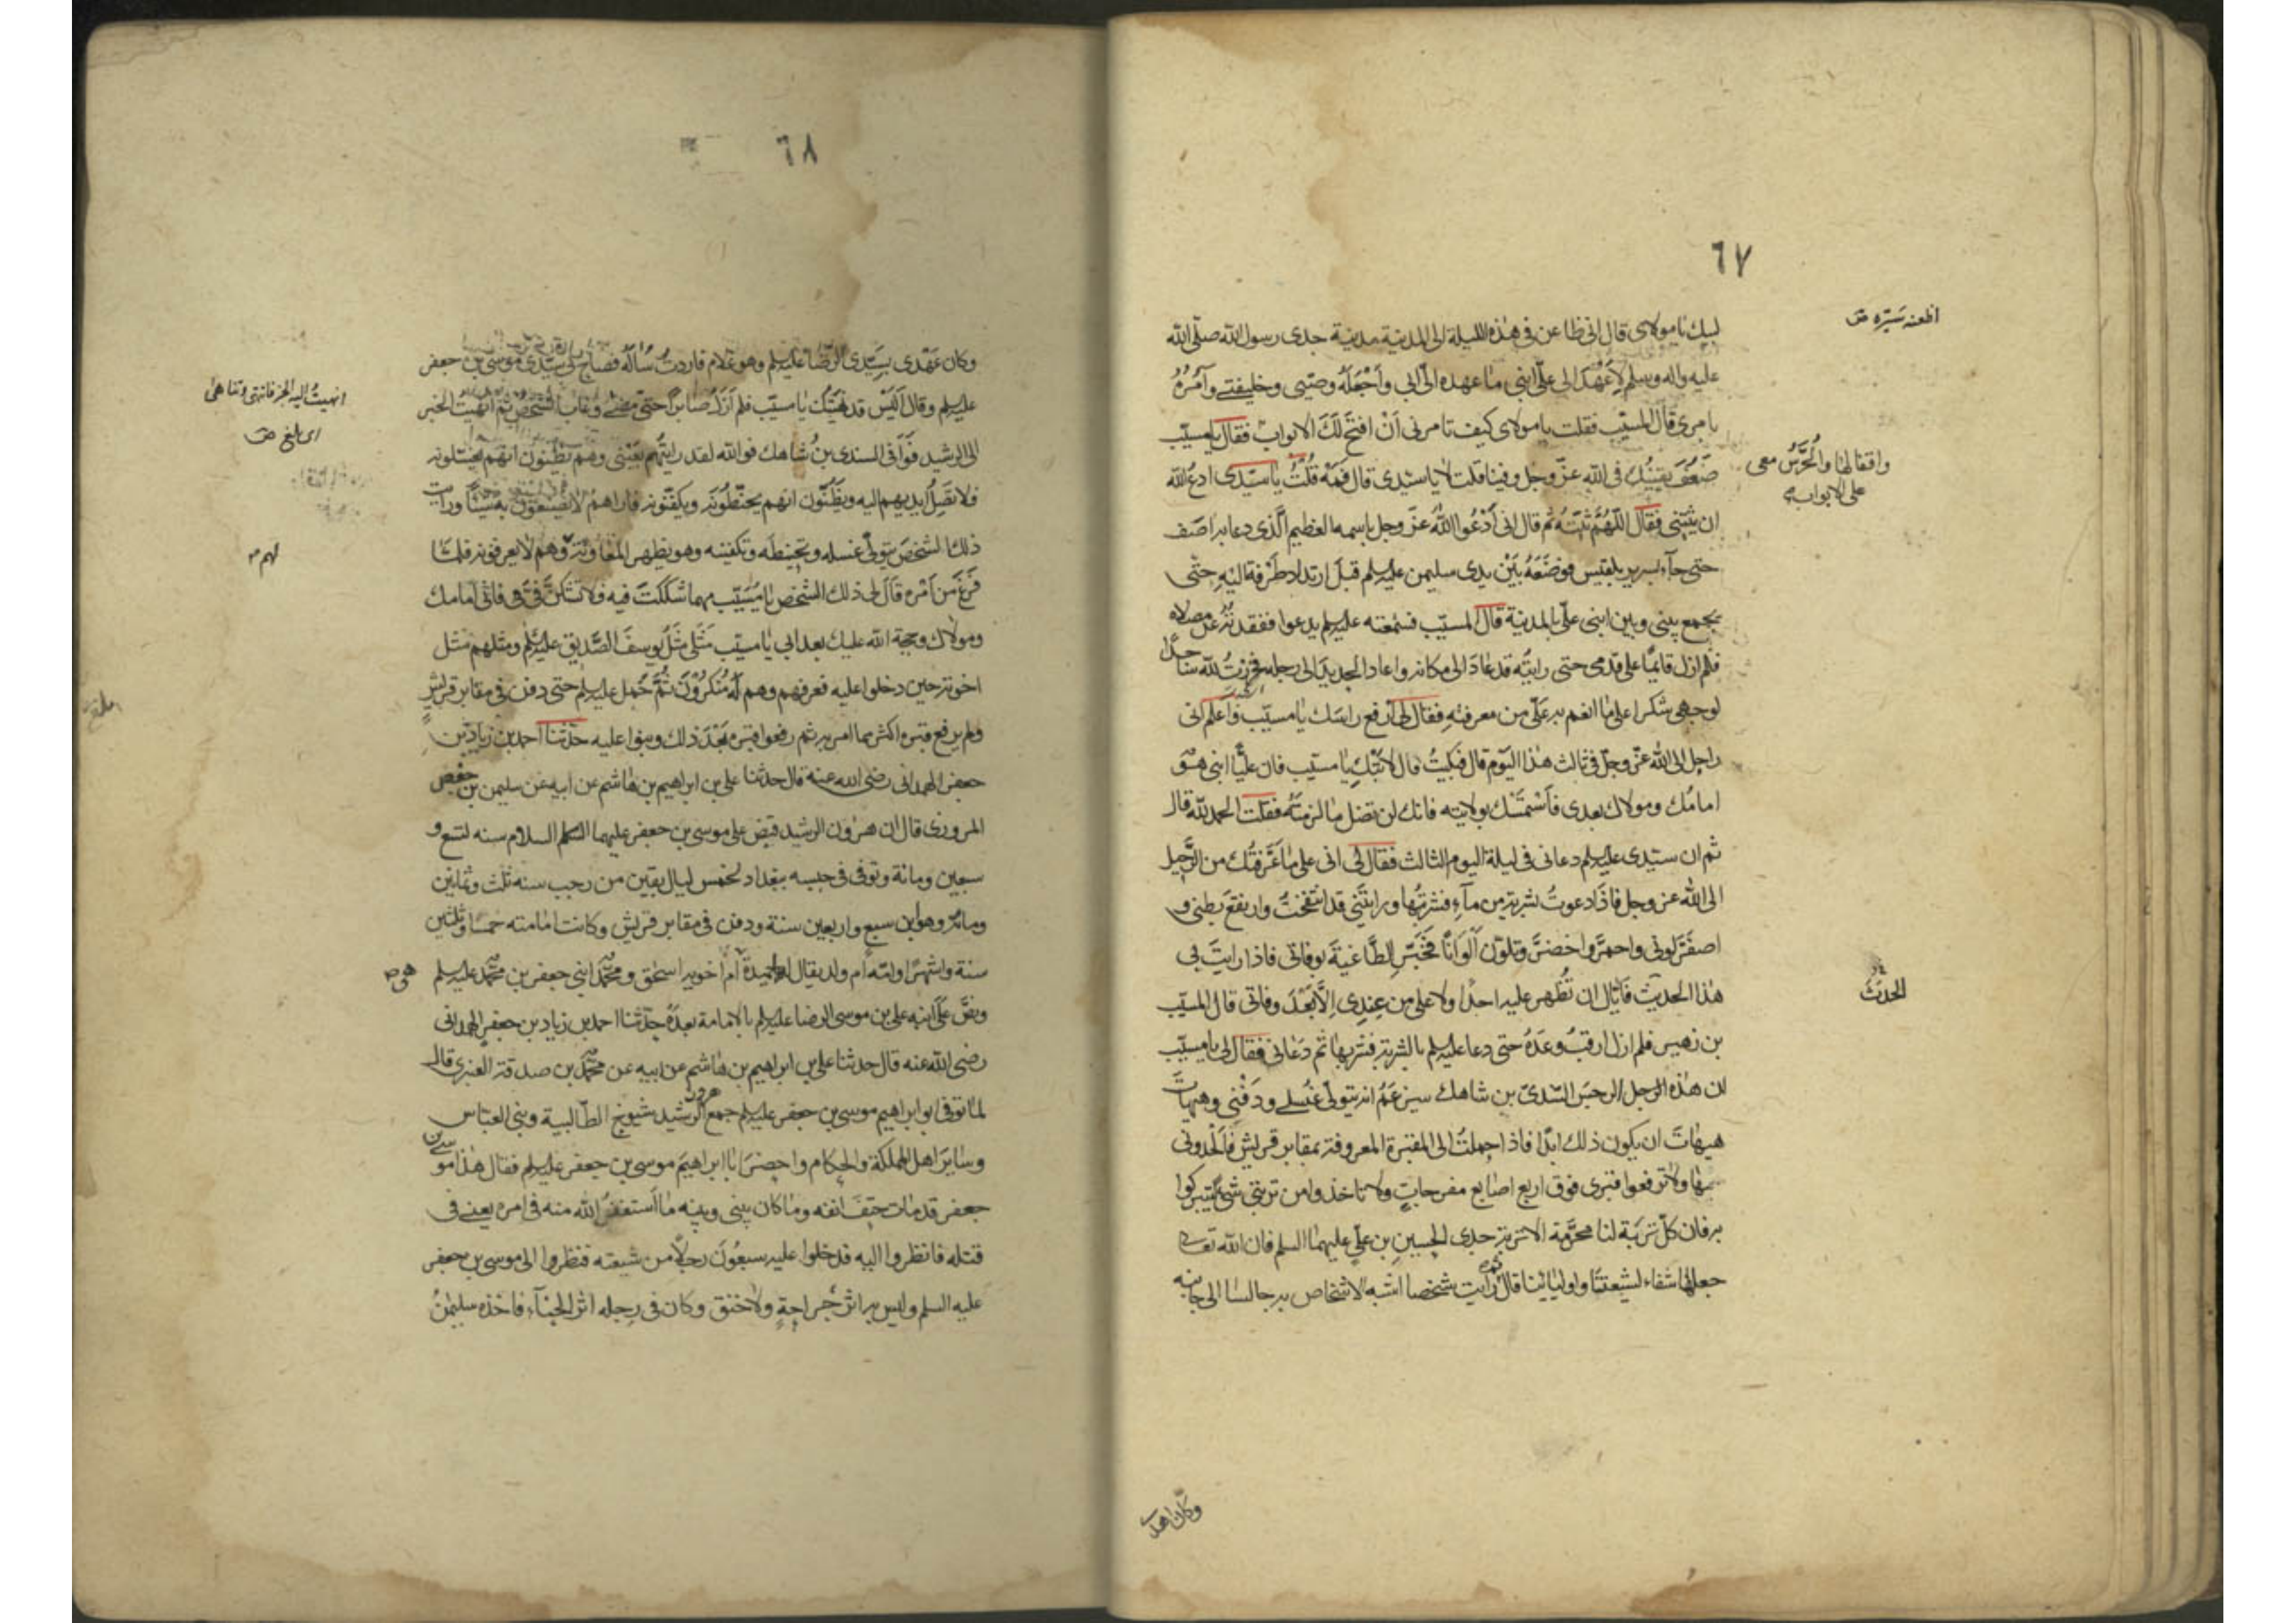 ٦٧
لبيك يا مولاى قال انى ظاعن فى هذه الليلة الى المدينة مدينة جدى رسول الله صلى الله
اظعنه سيّره ص
عليه واله وسلم لاعهد الى علىّ ابنى ما عهده الىّ ابى واجعله وصيى وخليفتى وآمره
بامرى قال المسيب فقلت يا مولاى كيف تامرنى ان افتح لك الابواب فقال يا مسيب
واقفالها والحرس معى
على الابواب
ضعف يقينك فى الله عز وجل وفينا قلت لا يا سيدى قال فمه قلت يا سيدى ادع الله
ان يثبتنى فقال اللهم ثبته ثم قال انى ادعوا الله عز وجل باسمه العظيم الذى دعا به اصف
حتى جآء بسرير بلقيس فوضعه بين يدى سليمن عليه السلم قبل ارتداد طرفه اليه حتى
يجمع بينى وبين ابنى علىّ بالمدينة قال المسيب فسمعته عليه السلم يدعوا ففقدته عن مصلاه
فلم ازل قائما على قدمى حتى رايته قد عاد الى مكانه واعاد الحديد الى رجله فخررت لله ساجدا
لوجهى شكرا على ما انعم به علىّ من معرفته فقال لى ارفع راسك يا مسيب واعلم انى
راحل الى الله عز وجل فى ثالث هذا اليوم قال فبكيت قال لا تبك يا مسيب فان عليّا ابنى هو
امامك ومولاك بعدى فاستمسك بولايته فانك لن تضل ما لزمته فقلت الحمد لله قال
ثم ان سيدى عليه السلم دعانى فى ليلة اليوم الثالث فقال لى انى على ما عرفتك من الرحيل
الى الله عز وجل فاذا دعوت بشربة من مآء فشربتها ورايتنى قد انتفخت وارتفع بطنى و
اصفرّ لونى واحمرّ واخضرّ وتلون الوانا فخبّر الطاغية بوفاتى فاذا رايت بى
هذا الحديث فاياك ان تظهر عليه احدا ولا على من عندى الا بعد وفاتى قال المسيب
الحدث
بن زهير فلم ازل ارقب وعده حتى دعا عليه السلم بالشربة فشربها ثم دعانى فقال لى يا مسيب
ان هذه الرجل الرجس السندىّ بن شاهك سيزعم انه يتولى غسلى ودفنى وهيهات
هيهات ان يكون ذلك ابدا فاذا حملت الى المقبرة المعروفة بمقابر قريش فالحدونى
بها ولا ترفعوا قبرى فوق اربع اصابع مفرجات ولا تاخذوا من تربتى شئ ليتبركوا
به فان كل تربة لنا محرّمة الا تربة جدى الحسين بن على عليهما السلم فان الله تعالى
جعلها شفاء لشيعتنا واوليائنا قال ثم رايت شخصا اشبه الاشخاص به جالسا الى جانبه
وكان عهد
٦٨
وكان عهدى بسيدى الرضا عليه السلم وهو غلام فاردت سؤاله فصاح بى سيدى موسى بن جعفر
عليه السلم وقال اليس قد نهيتك يا مسيب فلم ازل صابرا حتى مضى وغاب الشخص ثم انهيت الخبر
انهيت اليه الخبر فانتهى وتناهى
اى بلغ ص
الى الرشيد فوافى السندى بن شاهك فوالله لقد رايتهم بعينى وهم يظنون انهم يغسلونه
فلا تصل ايديهم اليه ويظنون انهم يحنطونه ويكفنونه واراهم لا يصنعون به شيئا ورايت
ذلك الشخص يتولى غسله وتحنيطه وتكفينه وهو يظهر المعاونة وهم لا يعرفونه فلما
لهم
فرغ من امره قال لى ذلك الشخص يا مسيب مهما شككت فيه فلا تشكنّ فىّ فانى امامك
ومولاك وحجة الله عليك بعد ابى يا مسيب مثلى مثل يوسف الصديق عليه السلم ومثلهم مثل
اخوته حين دخلوا عليه فعرفهم وهم له منكرون ثم حمل عليه السلم حتى دفن فى مقابر قريش
ولم يرفع قبره اكثر مما امر به ثم رفعوا قبره بعد ذلك وبنوا عليه حدثنا احمد بن زياد بن
جعفر الهمدانى رضى الله عنه قال حدثنا على بن ابراهيم بن هاشم عن ابيه عن سليمن بن حفص
المروزى قال ان هرون الرشيد قبض على موسى بن جعفر عليهما السلام سنه تسع و
سبعين ومائة وتوفى فى حبسه ببغداد لخمس ليال بقين من رجب سنه ثلث وثمانين
ومائة وهو ابن سبع واربعين سنة ودفن فى مقابر قريش وكانت امامته خمسا وثلثين
سنة واشهرا وامّه ام ولد يقال لها حميدة ام اخويه اسحق ومحمد ابنى جعفر بن محمد عليه السلم
هى
ونصّ على ابنه على بن موسى الرضا عليه السلم بالامامة بعده حدثنا احمد بن زياد بن جعفر الهمدانى
رضى الله عنه قال حدثنا على بن ابراهيم بن هاشم عن ابيه عن محمد بن صدقة العنبرى قال
لما توفى ابو ابراهيم موسى بن جعفر عليه السلم جمع هرون الرشيد شيوخ الطالبية وبنى العباس
وساير اهل المملكة والحكام واحضر ابا ابراهيم موسى بن جعفر عليه السلم فقال هذا موسى بن
جعفر قد مات حتف انفه وما كان بينى وبينه ما استغفر الله منه فى امره يعنى فى
قتله فانظروا اليه فدخلوا عليه سبعون رجلا من شيعته فنظروا الى موسى بن جعفر
عليه السلم وليس به اثر جراحة ولا خنق وكان فى رجله اثر الحناء فاخذه سليمن